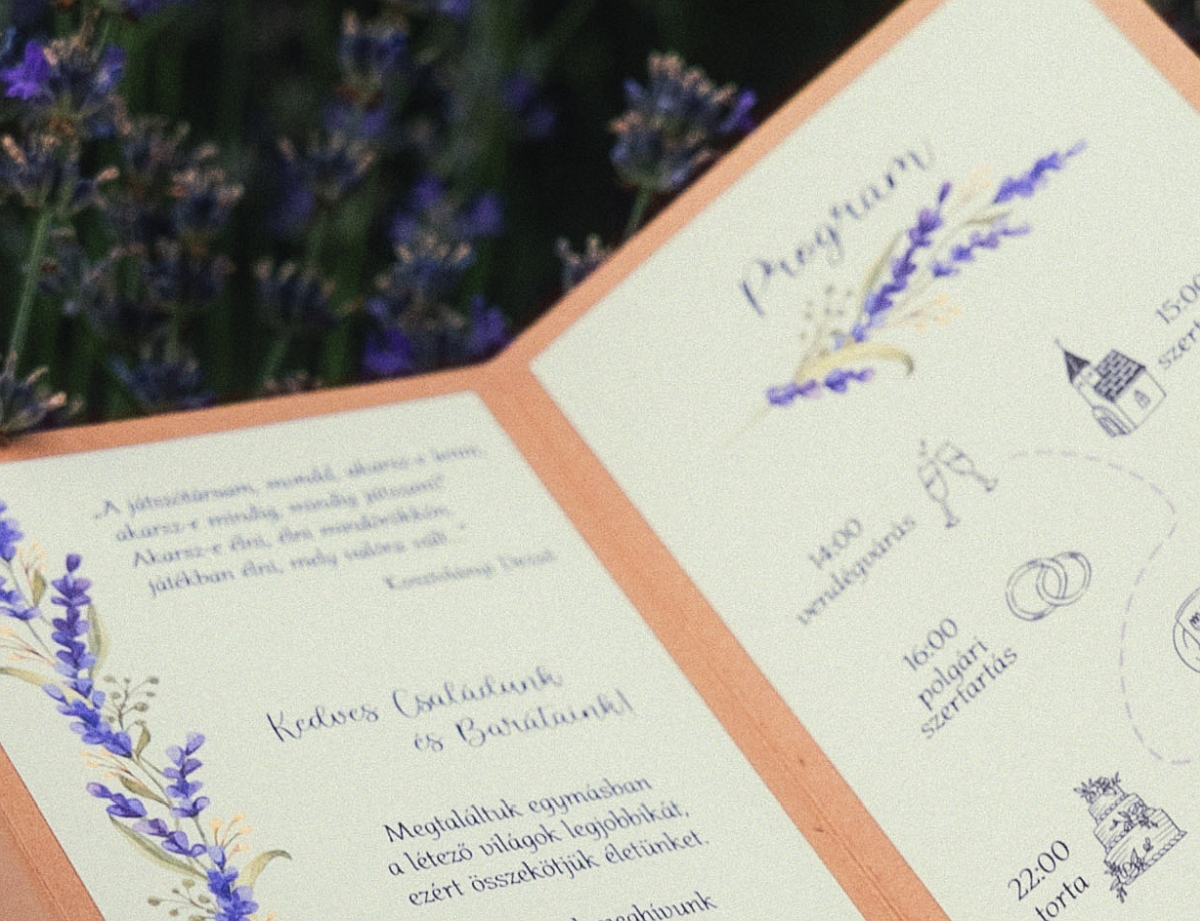 „A játszótársam, mondd, akarsz-e lenni,
akarsz-e mindig, mindig játszani?
Akarsz-e élni, élni mindörökkön,
játékban élni, mely valóra vált.”
Kosztolányi Dezső
Kedves Családunk
és Barátaink!
Megtaláltuk egymásban
a létező világok legjobbikát,
ezért összekötjük életünket.
meghívunk
Program
15:00
14:00
vendégvárás
16:00
polgári
szertartás
22:00
torta